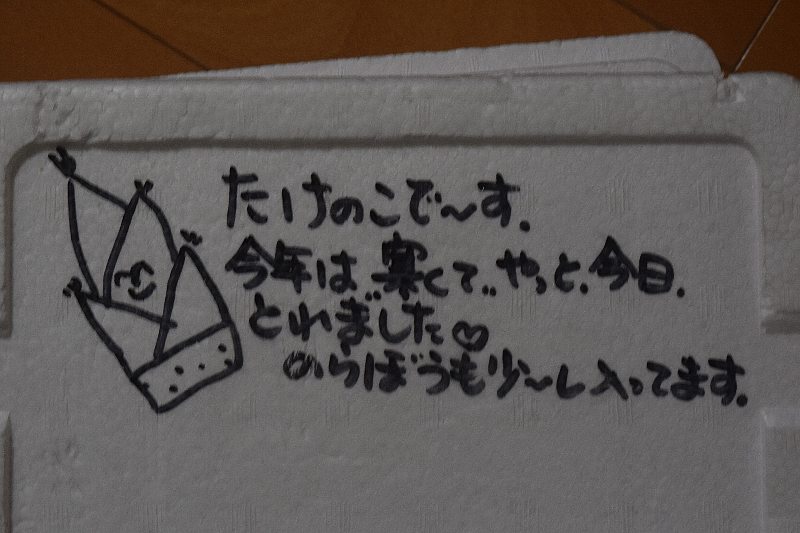 たけのこで〜す.
今年は、寒くて‥やっと、今日.
とれました♡
のらぼうも少〜し入ってます.